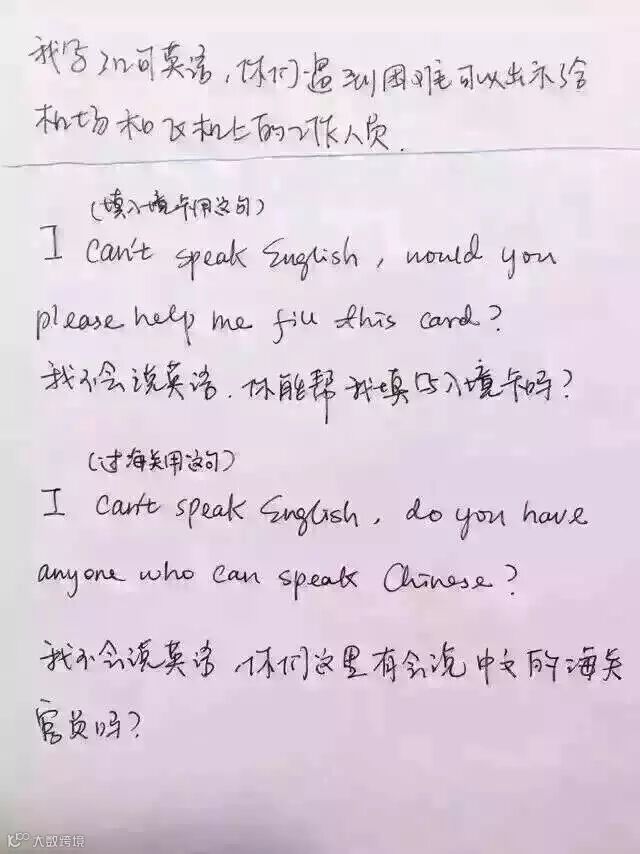 我写了几句英语，你们遇到困难可以出示给
机场和飞机上的工作人员.
(填入境卡用这句)
I can't speak English, would you
please help me fill this card?
我不会说英语，你能帮我填写入境卡吗?
(过海关用这句)
I can't speak English, do you have
anyone who can speak Chinese?
我不会说英语，你们这里有会说中文的海关
官员吗?
大数跨境